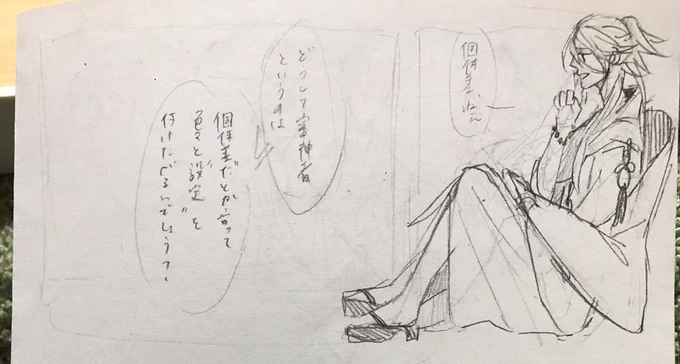 個体差、ねぇ
どうして審神者
というのは
個体差だとか言って
色々と"設定"を
付けたがるんでしょう?